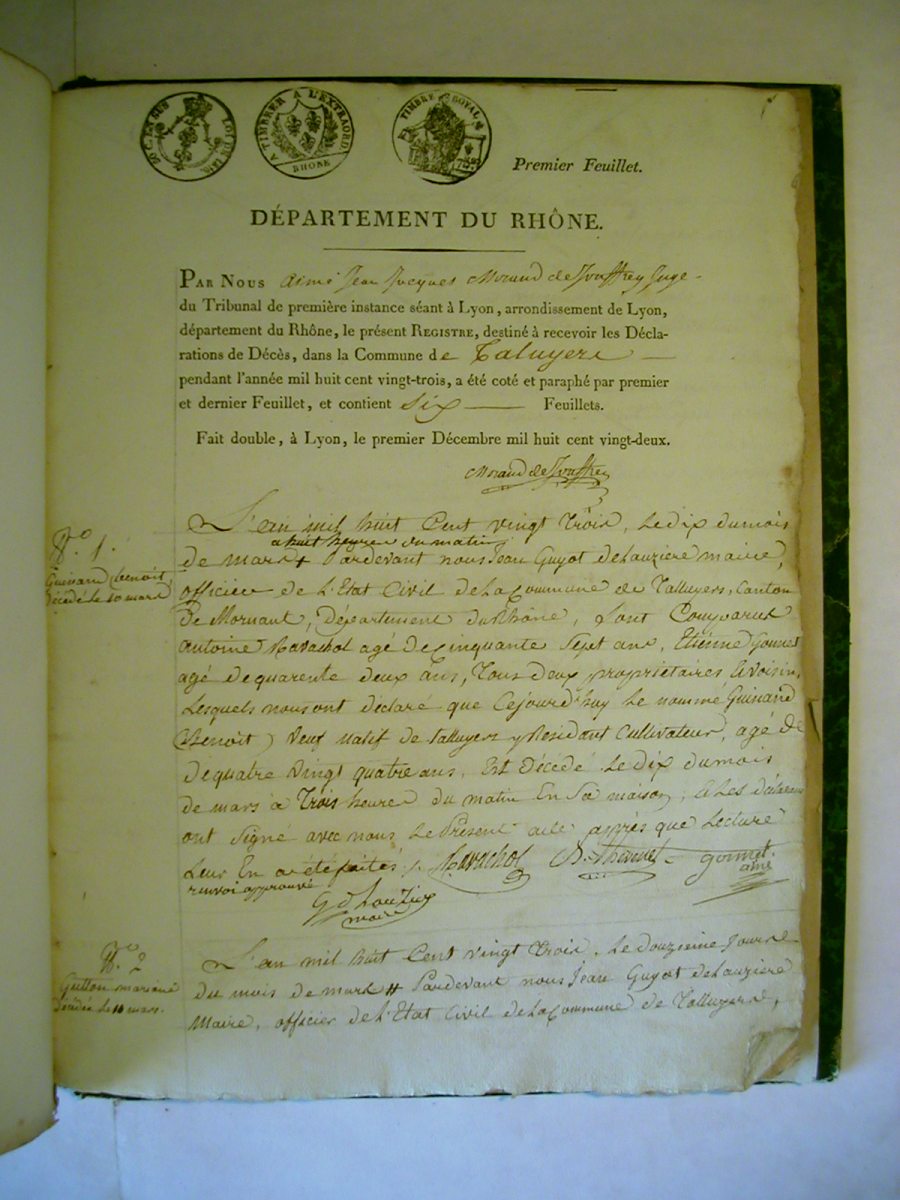 A TIMBRER A L'EXTRAORD.
RHÔNE
TIMBRE ROYAL
Premier Feuillet.
DÉPARTEMENT DU RHÔNE.
PAR NOUS Aimé Jean Jacques Morand de Jouffrey Juge
du Tribunal de première instance séant à Lyon, arrondissement de Lyon,
département du Rhône, le présent REGISTRE, destiné à recevoir les Décla-
rations de Décès, dans la Commune de Taluyers
pendant l'année mil huit cent vingt-trois, a été coté et paraphé par premier
et dernier Feuillet, et contient six Feuillets.
Fait double, à Lyon, le premier Décembre mil huit cent vingt-deux.
Morand de Jouffrey
N.o 1.
Guinand Benoit
Décédé le 10 mars
L'an mil huit Cent vingt Trois, Le dix du mois
a huit heures du matin
de mars + Pardevant nous Jean Guyot deLauziere maire,
officier de L'Etat Civil de La Commune de Talluyers, Canton
de Mornant, Département du Rhône, sont Comparus
antoine Ravachol agé de Cinquante Sept ans, Etienne Gonnet
agé de quarente deux ans, Tous deux propriétaires, & voisin,
Lesquels nous ont déclaré que Cejourd'huy Le nommé Guinand
Benoit, Veuf natif de talluyers y Residant Cultivateur, agé de
de quatre vingt quatre ans, Est Décédé Le dix du mois
de mars à Trois heures du matin En Sa maison, & Les déclarans
ont Signé avec nous Le Présent acte apprès que Lecture
Leur En a été faites ./. Ravachol B. Thevenet gonnet
ainé
renvoi approuvé
G d Lauzier
maire
N.o 2
Guiton mariane
Décédée le 10 mars.
L'an mil huit Cent vingt trois, Le douzieme Jour
du mois de mars # Pardevant nous Jean Guyot deLauziere
Maire, officier de L'Etat Civil de La Commune de Talluyers,